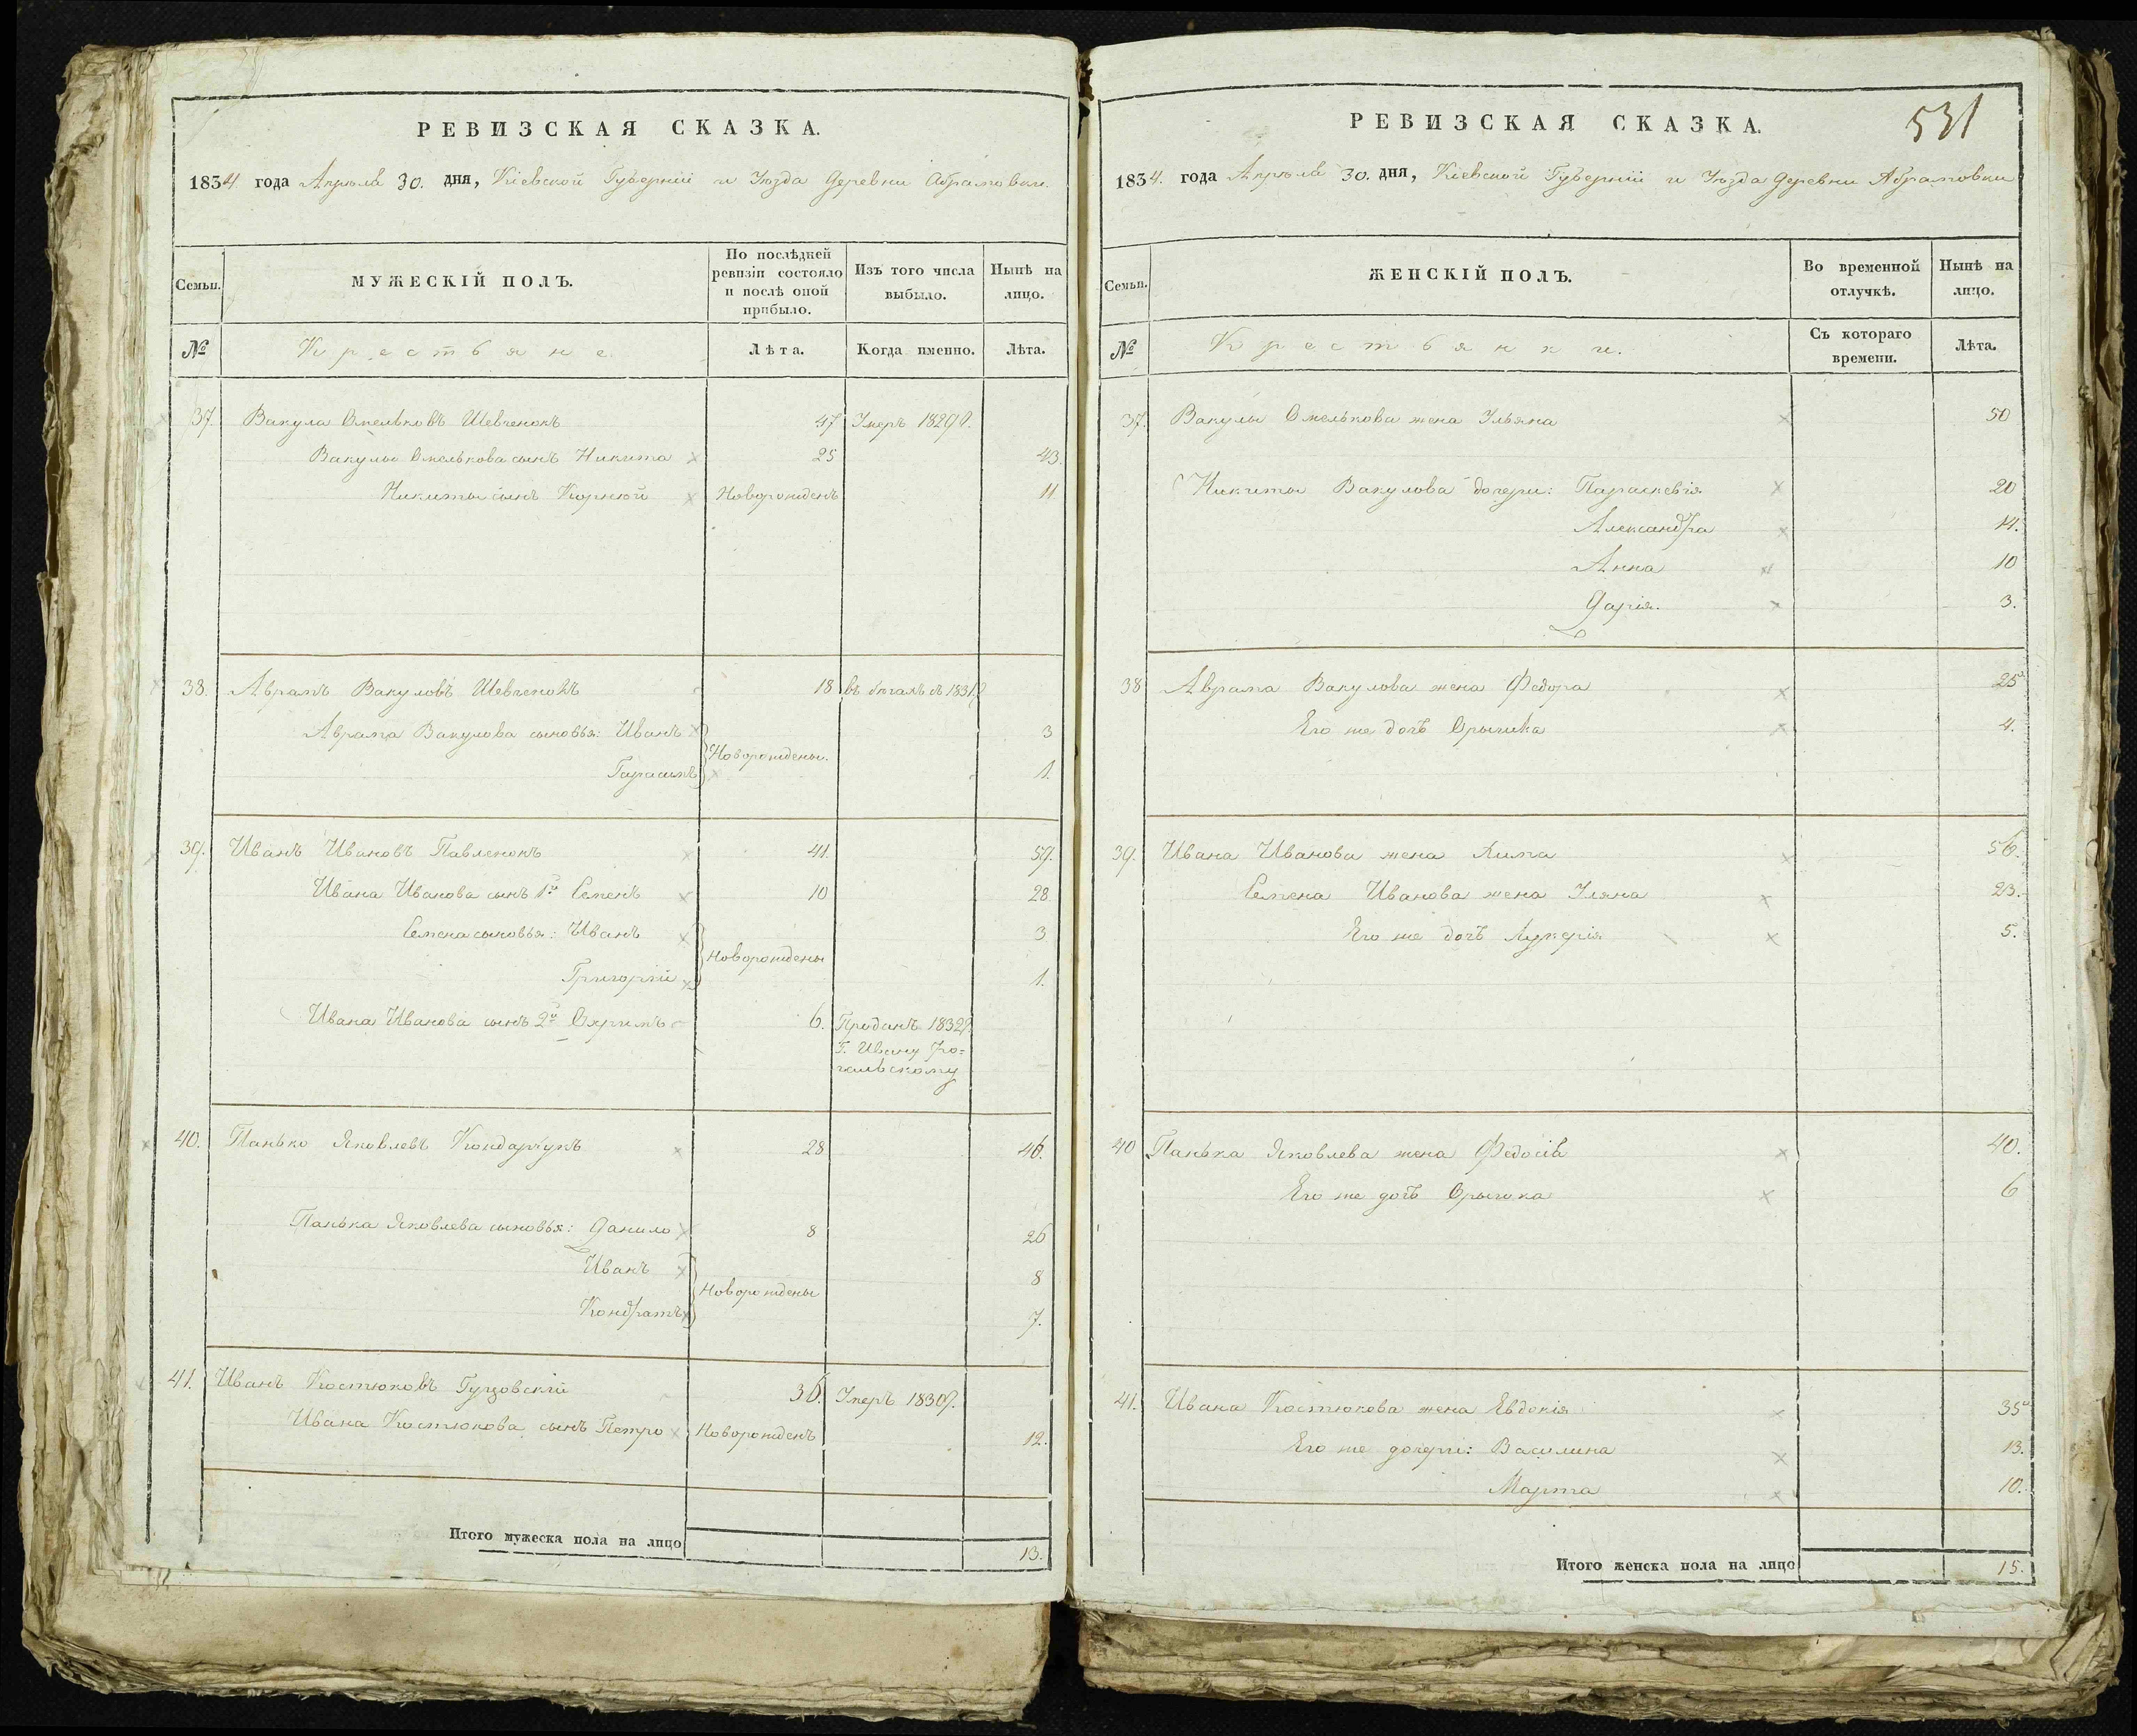 РЕВИЗСКАЯ СКАЗКА.
1834 года Апреля 30. дня, Кіевской Губерніи и Уезда Деревни Абрамовки.
Семьи.
МУЖЕСКІЙ ПОЛЪ.
По послѣдней ревизіи состояло и послѣ оной прибыло.
Изъ того числа выбыло.
Нынѣ на лицо.
№
Крестьяне.
Лѣта.
Когда именно.
Лѣта.
37. Вакула Омельковъ Шевченокъ 47 Умеръ 1829
Вакулы Омелькова сынъ Никита 25 43.
Никиты сынъ Корней Новорожденъ 11
38. Аврамъ Вакуловъ Шевченокъ 18 въ бегахъ съ 1831
Аврама Вакулова сыновья: Иванъ 3
Новорождены.
Гарасимъ 1.
39. Иванъ Ивановъ Павленокъ 41. 59.
Ивана Иванова сынъ 1й Семенъ 10 28
Семена сыновья: Иванъ 3
Новорождены
Григорій 1.
Ивана Иванова сынъ 2й Охримъ 6. Проданъ 1832
Г. Ивану
40. Панько Яковлевъ Кондарчукъ 28 46.
Панька Яковлева сыновья: Данило 8 26
Иванъ 8
Новорождены
Кондратъ 7.
41. Иванъ Костюковъ 36. Умеръ 1830
Ивана Костюкова сынъ Петро Новорожденъ 12.
Итого мужеска пола на лицо 13.
531
РЕВИЗСКАЯ СКАЗКА.
1834. года Апреля 30. дня, Кіевской Губерніи и Уезда Деревни Абрамовки
Семьи.
ЖЕНСКІЙ ПОЛЪ.
Во временной отлучкѣ.
Нынѣ на лицо.
№
Крестьянки.
Съ котораго времени.
Лѣта.
37. Вакулы Омелькова жена Ульяна 50
Никиты Вакулова дочери: Параскевія 20
Александра 14.
Анна 10
Дарія. 3.
38 Аврама Вакулова жена Федора 25
Его же дочь Орышка 4.
39. Ивана Иванова жена 56.
Семена Иванова жена Уляна 23.
Его же дочь Лукерія 5.
40 Панька Яковлева жена Федосія 40.
Его же дочь Орышка 6
41. Ивана Костюкова жена Евдокія 35
Его же дочери: Василина 13.
Марта 10.
Итого женска пола на лицо 15.